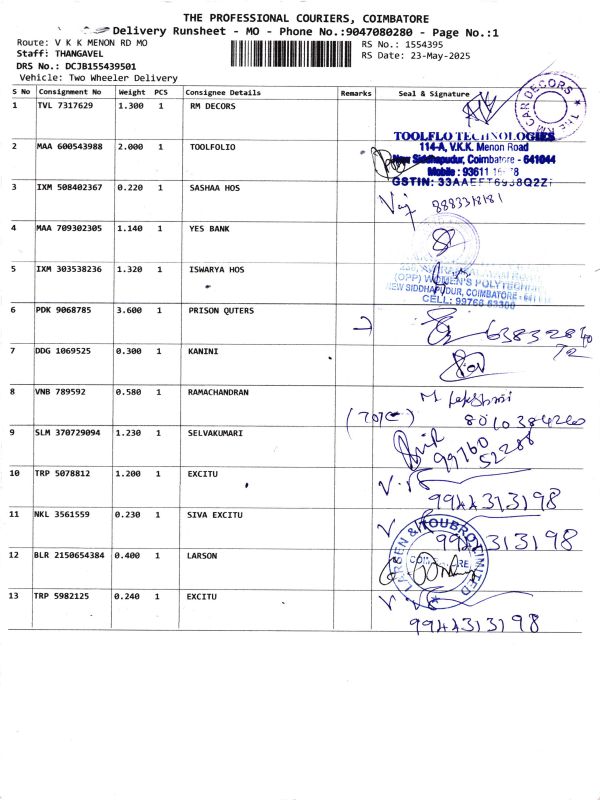 THE PROFESSIONAL COURIERS, COIMBATORE
Delivery Runsheet - MO - Phone No.:9047080280 - Page No.:1
Route: V K K MENON RD MO
RS No.: 1554395
Staff: THANGAVEL
RS Date: 23-May-2025
DRS No.: DCJB155439501
Vehicle: Two Wheeler Delivery
S No Consignment No Weight PCS Consignee Details Remarks Seal & Signature
1 TVL 7317629 1.300 1 RM DECORS
CAR DECORS ★ THE RM
2 MAA 600543988 2.000 1 TOOLFOLIO
TOOLFLO TECHNOLOGIES
114-A, V.K.K. Menon Road
New Siddhapudur, Coimbatore - 641044
Mobile : 93611
GSTIN:
3 IXM 508402367 0.220 1 SASHAA HOS
8883318181
4 MAA 709302305 1.140 1 YES BANK
5 IXM 303538236 1.320 1 ISWARYA HOS
(OPP) WOMEN'S POLYTECHNIC
NEW SIDDHAPUDUR, COIMBATORE -
CELL: 99766 63300
6 PDK 9068785 3.600 1 PRISON QUTERS
7 DDG 1069525 0.300 1 KANINI
8 VNB 789592 0.580 1 RAMACHANDRAN
8010384260
9 SLM 370729094 1.230 1 SELVAKUMARI
99760
52288
10 TRP 5078812 1.200 1 EXCITU
9944313198
11 NKL 3561559 0.230 1 SIVA EXCITU
9944313198
12 BLR 2150654384 0.400 1 LARSON
LARSEN & TOUBRO LIMITED
13 TRP 5982125 0.240 1 EXCITU
9944313198